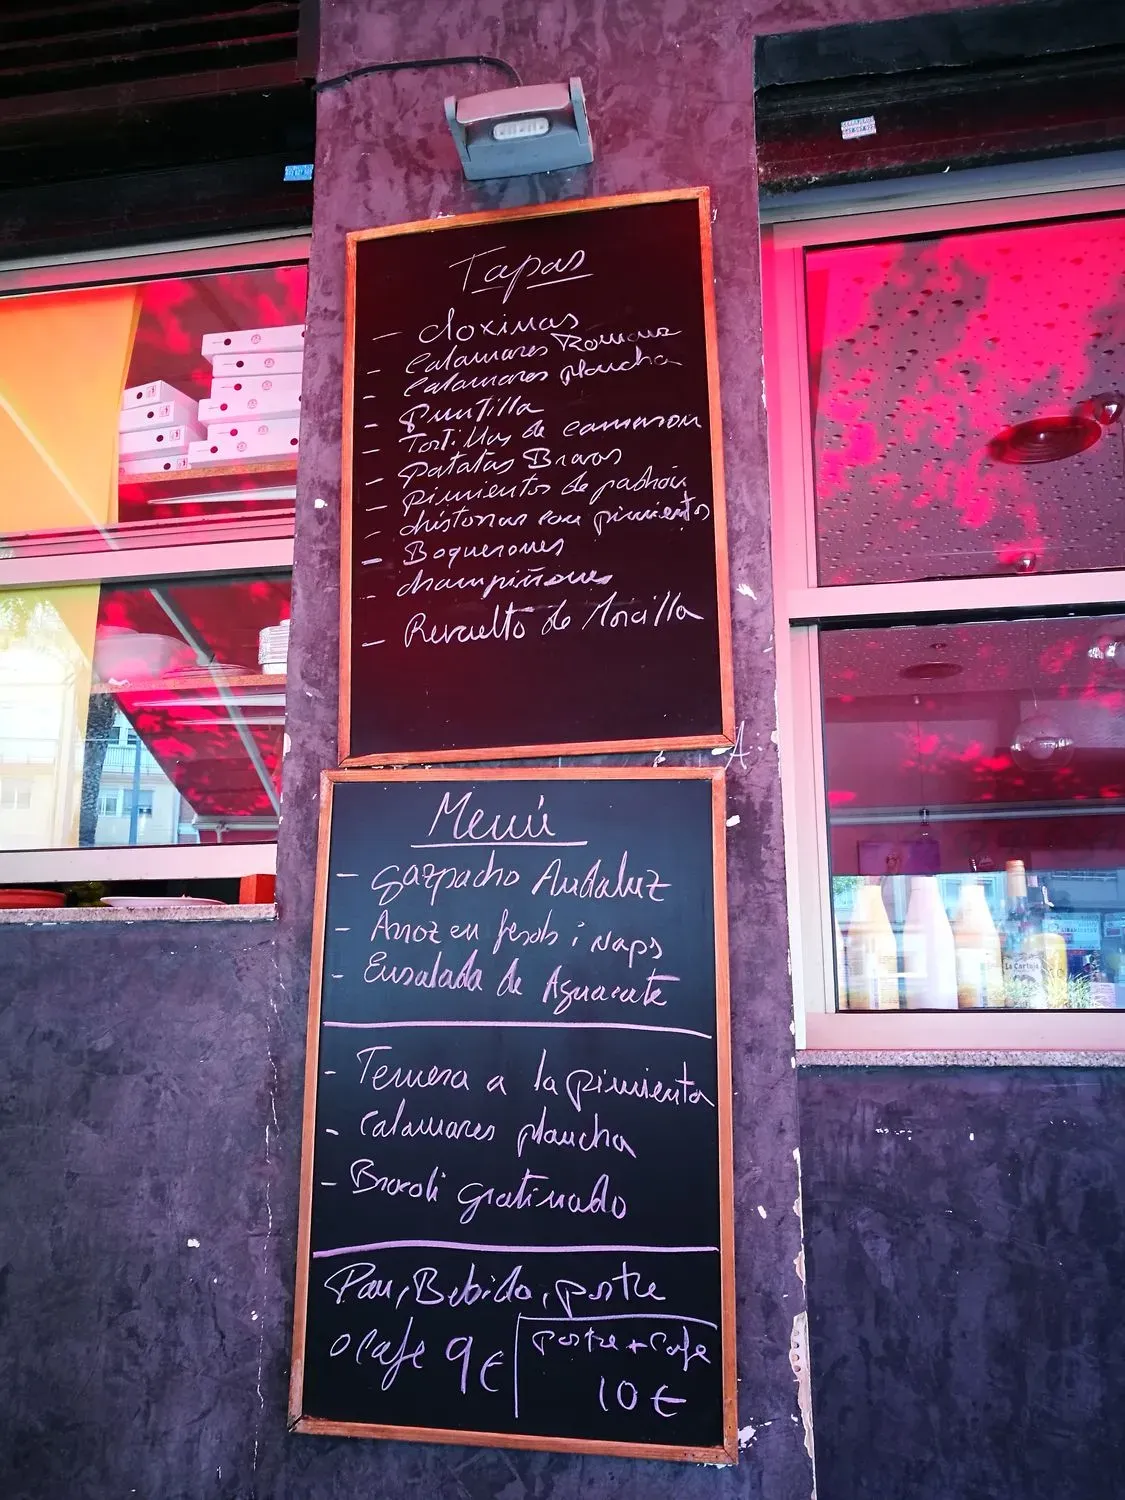 Tapas
- cloxinas
- Calamares Romana
- Calamares plancha
- Puntilla
- Tortillas de camaron
- Patatas Bravas
- Pimientos de padrón
- chistorras con pimientos
- Boquerones
- champiñones
- Revuelto de Morcilla
Menú
- gazpacho Andaluz
- Arroz en fesols i naps
- Ensalada de Aguacate
- Ternera a la pimienta
- Calamares plancha
- Brocoli gratinado
Pan, Bebida, postre
o Cafe 9€
Postre + Cafe
10€
La Cartuja